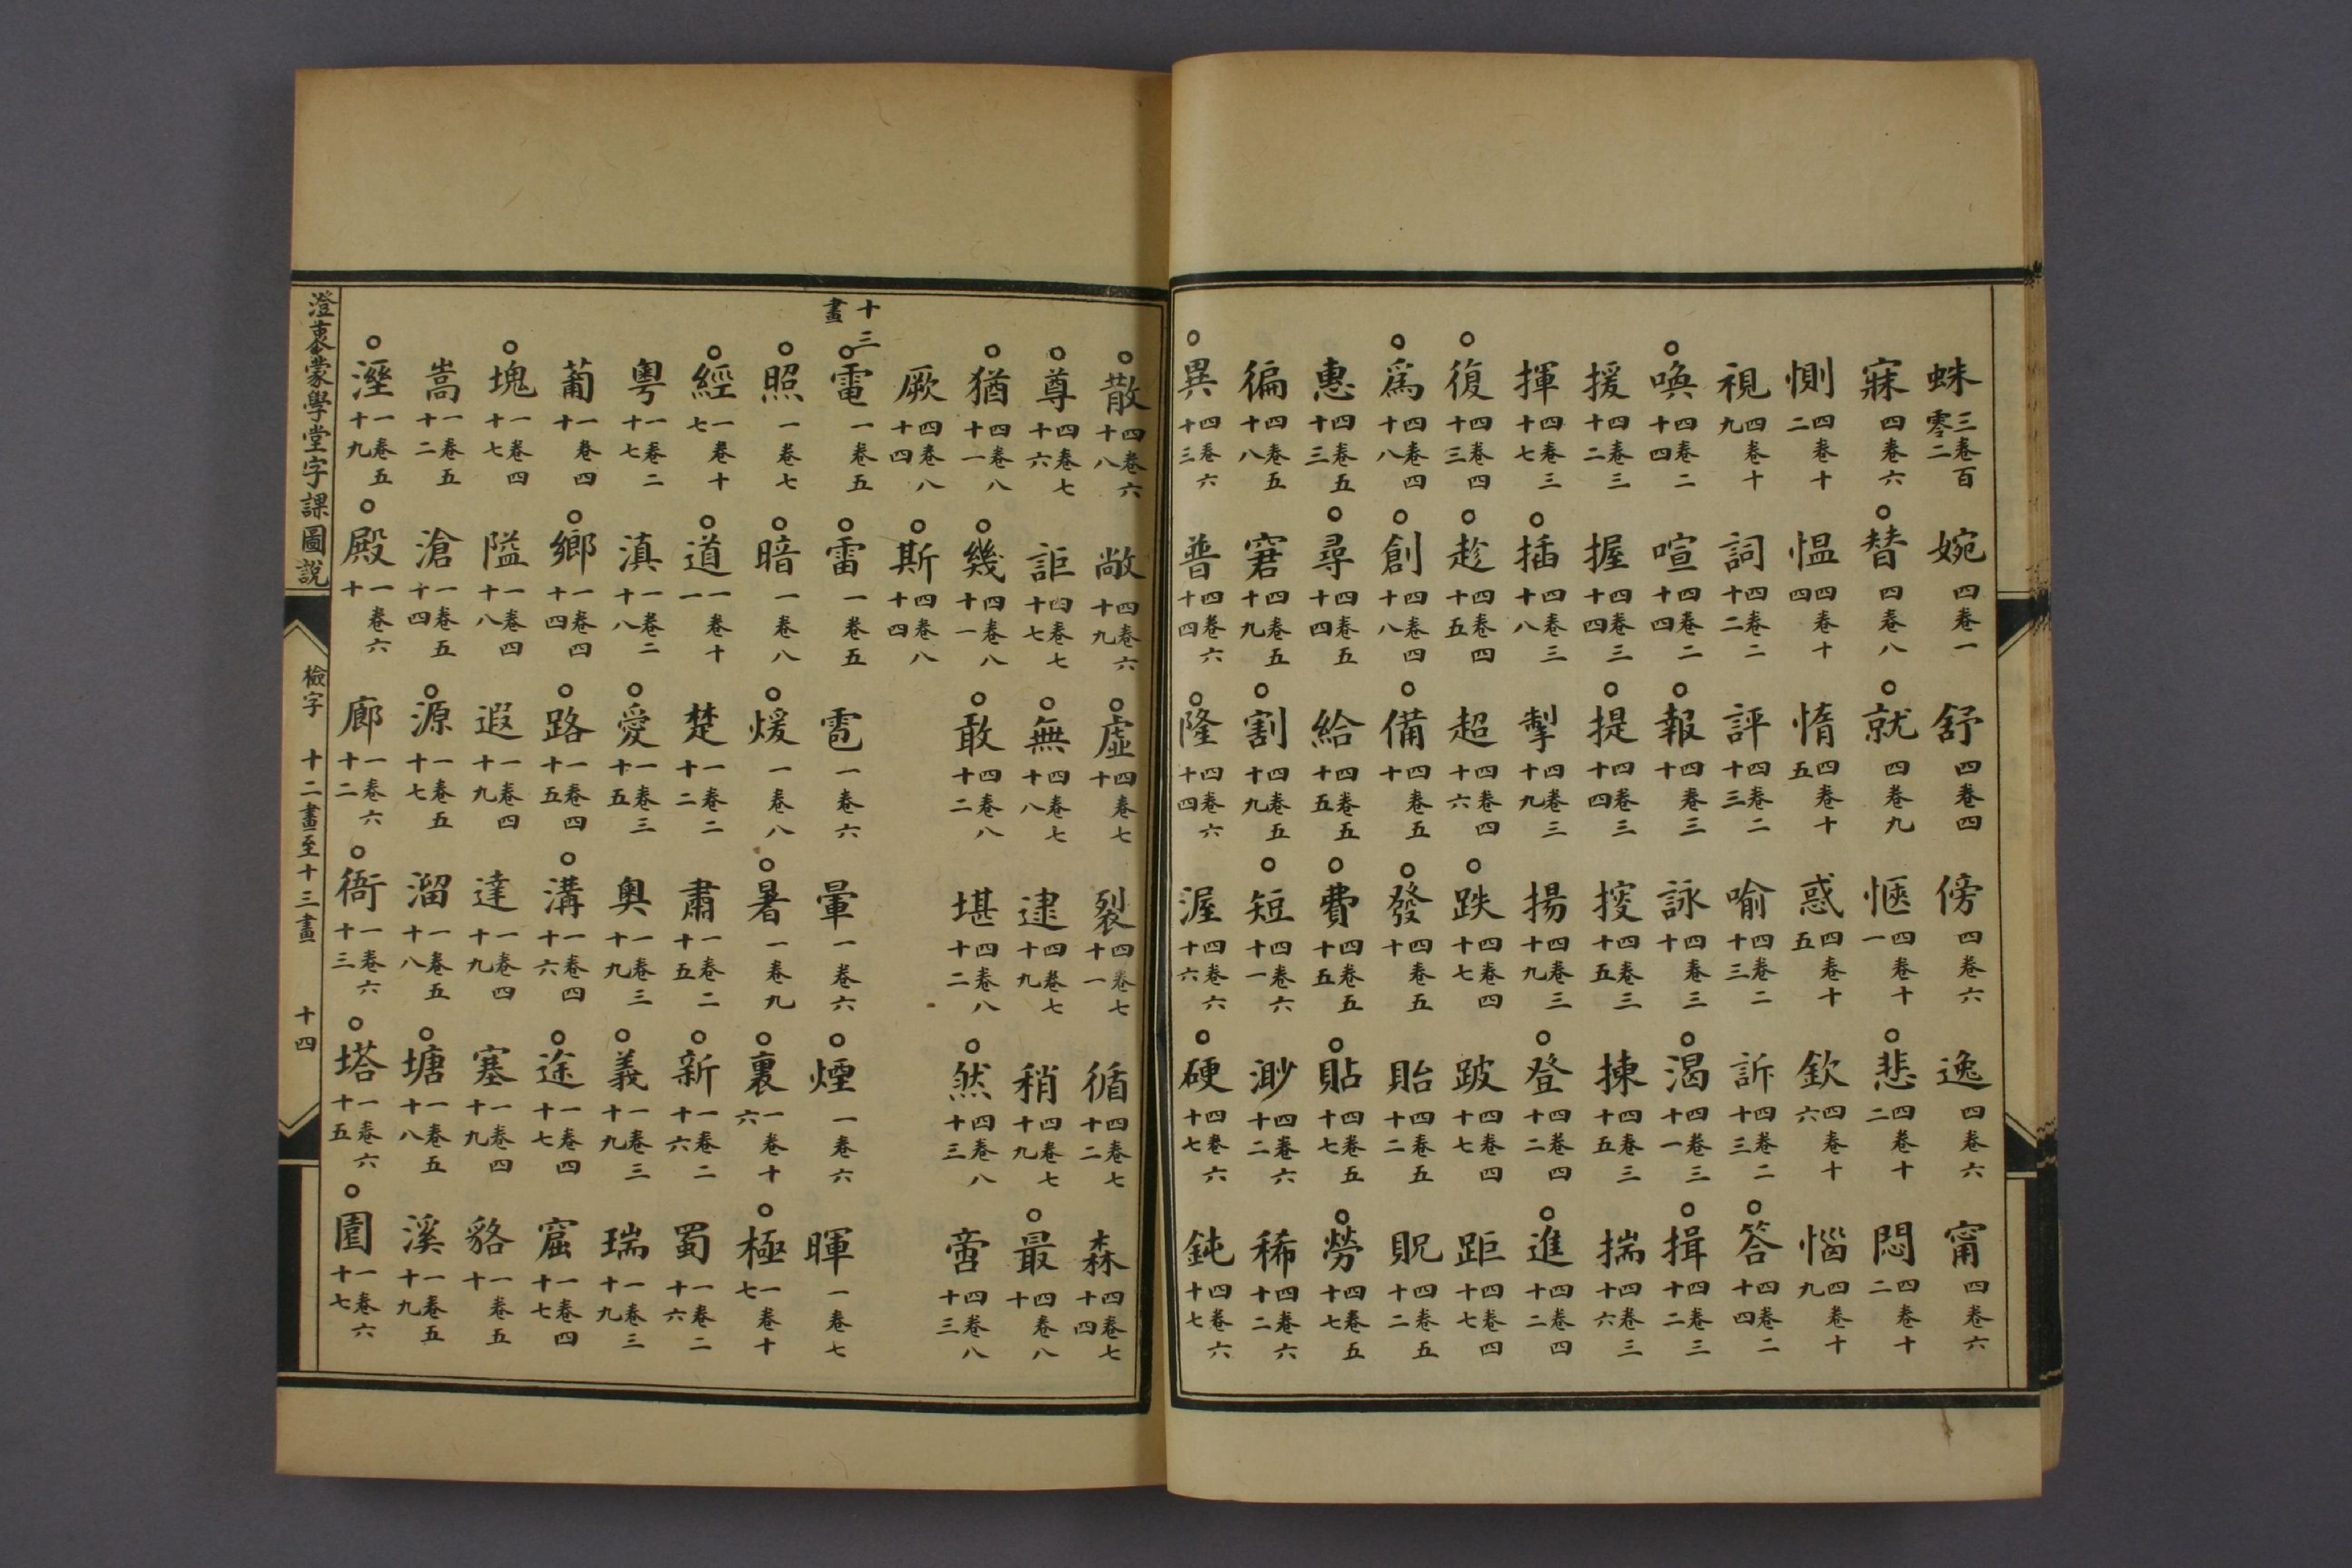 蛛三卷百零二 婉四卷一 舒四卷四 傍四卷六 逸四卷六 甯四卷六
寐四卷六 ○替四卷八 ○就四卷九 愜四卷十一 ○悲四卷十二 悶四卷十二
惻四卷十二 愠四卷十四 惰四卷十五 惑四卷十五 欽四卷十六 惱四卷十九
視四卷十九 詞四卷二十二 評四卷二十三 喻四卷二十三 訴四卷二十三 ○答四卷二十四
○喚四卷二十四 喧四卷二十四 ○報四卷三十 詠四卷三十 ○渴四卷三十一 ○揖四卷三十二
援四卷三十二 握四卷三十四 ○提四卷三十四 四卷三十五 揀四卷三十五 揣四卷三十六
揮四卷三十七 ○插四卷三十八 掣四卷三十九 揚四卷三十九 ○登四卷四十二 ○進四卷四十二
○復四卷四十三 ○趁四卷四十五 超四卷四十六 ○跌四卷四十七 跛四卷四十七 距四卷四十七
○爲四卷四十八 ○創四卷四十八 ○備四卷五十 ○發四卷五十 貽四卷五十二 貺四卷五十二
惠四卷五十三 ○尋四卷五十四 給四卷五十五 ○費四卷五十五 ○貼四卷五十七 ○勞四卷五十七
徧四卷五十八 窘四卷五十九 ○割四卷五十九 ○短四卷六十一 渺四卷六十二 稀四卷六十二
○異四卷六十三 普四卷六十四 ○隆四卷六十四 渥四卷六十六 ○硬四卷六十七 鈍四卷六十七
○散四卷六十八 敞四卷六十九 ○虛四卷七十 裂四卷七十一 循四卷七十二 森四卷七十四
○尊四卷七十六 詎四卷七十七 ○無四卷七十八 逮四卷七十九 稍四卷七十九 ○最四卷八十
○猶四卷八十一 ○幾四卷八十一 ○敢四卷八十二 堪四卷八十二 ○然四卷八十三 啻四卷八十三
厥四卷八十四 ○斯四卷八十四
十三畫
○電一卷五 ○雷一卷五 雹一卷六 暈一卷六 ○煙一卷六 暉一卷七
○照一卷七 ○暗一卷八 ○煖一卷八 ○暑一卷九 ○裏一卷十六 ○極一卷十七
○經一卷十七 ○道一卷十一 楚一卷二十二 肅一卷二十五 ○新一卷二十六 蜀一卷二十六
粵一卷二十七 滇一卷二十八 ○愛一卷三十五 奧一卷三十九 ○義一卷三十九 瑞一卷三十九
葡一卷四十 ○鄉一卷四十四 ○路一卷四十五 ○溝一卷四十六 ○途一卷四十七 窟一卷四十七
○塊一卷四十七 隘一卷四十八 遐一卷四十九 達一卷四十九 塞一卷四十九 貉一卷五十
嵩一卷五十二 滄一卷五十四 ○源一卷五十七 溜一卷五十八 ○塘一卷五十八 溪一卷五十九
○溼一卷五十九 ○殿一卷六十 廊一卷六十二 ○衙一卷六十三 ○塔一卷六十五 ○園一卷六十七
澄衷蒙學堂字課圖說 檢字 十二畫至十三畫 十四